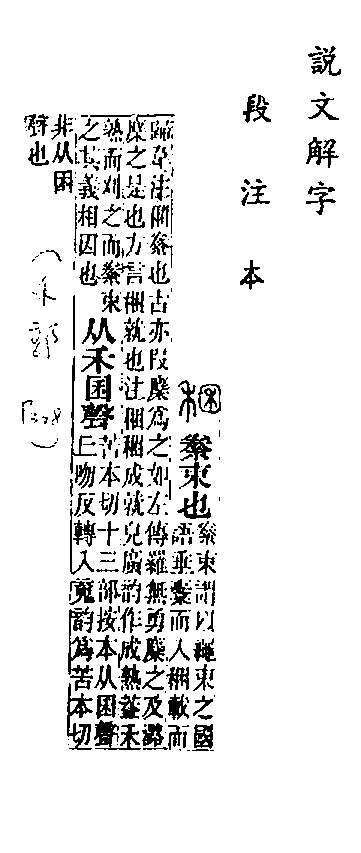 説文解字
段注本
稛 絭束也 絭束謂以繩束之國
語垂橐而入稛載而
歸韋注稛絭也古亦叚麇爲之如左傳羅無勇麇之及潞
麇之是也方言稛就也注稛稛成就皃廣韵作成熟葢禾
熟而刈之而絭束
之其義相因也
从禾囷聲 苦本切十三部按本从囷聲
丘吻反轉入䰟韵爲苦本切
非从困
聲也
(禾部